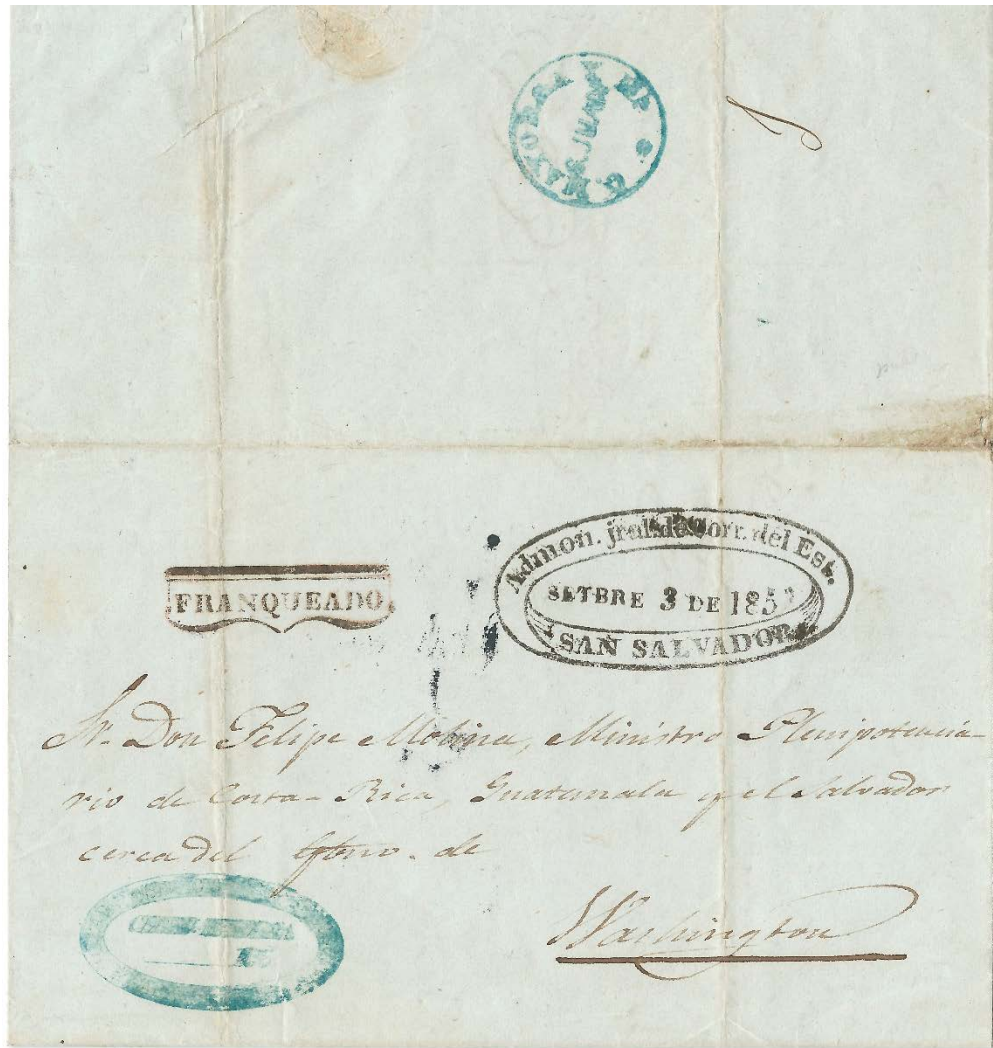 FRANQUEADO
Admon. jral. de Corr. del Est.
SETBRE 3 DE 185
SAN SALVADOR
Sr. Don Felipe Molina, Ministro Plenipotencia-
rio de Costa-Rica, Guatemala y el Salvador
cerca del de
Washington